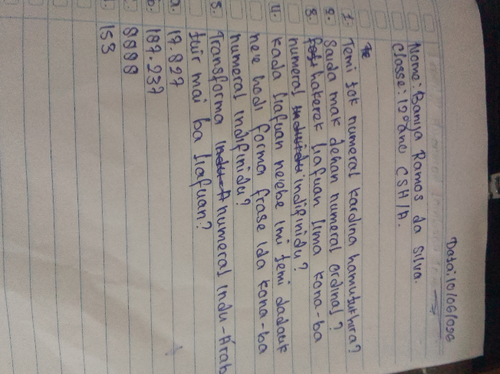 Data: 10/06/026
Nome: Banya Ramos da Silva.
Classe: 12º ano CSH/A.
1. Temi tok numeral kardina hamutukhira?
2. Saida mak dehan numeral ordinal?
3. hakerek liafuan lima kona-ba
numeral indifinidu?
4. kada liafuan neebe imi temi dadauk
nee hodi forma frase ida kona-ba
numeral indifinidu?
5. Transforma numeral indu-Arab
tuir mai ba liafuan?
a. 17.927
b. 187.237
8888
153